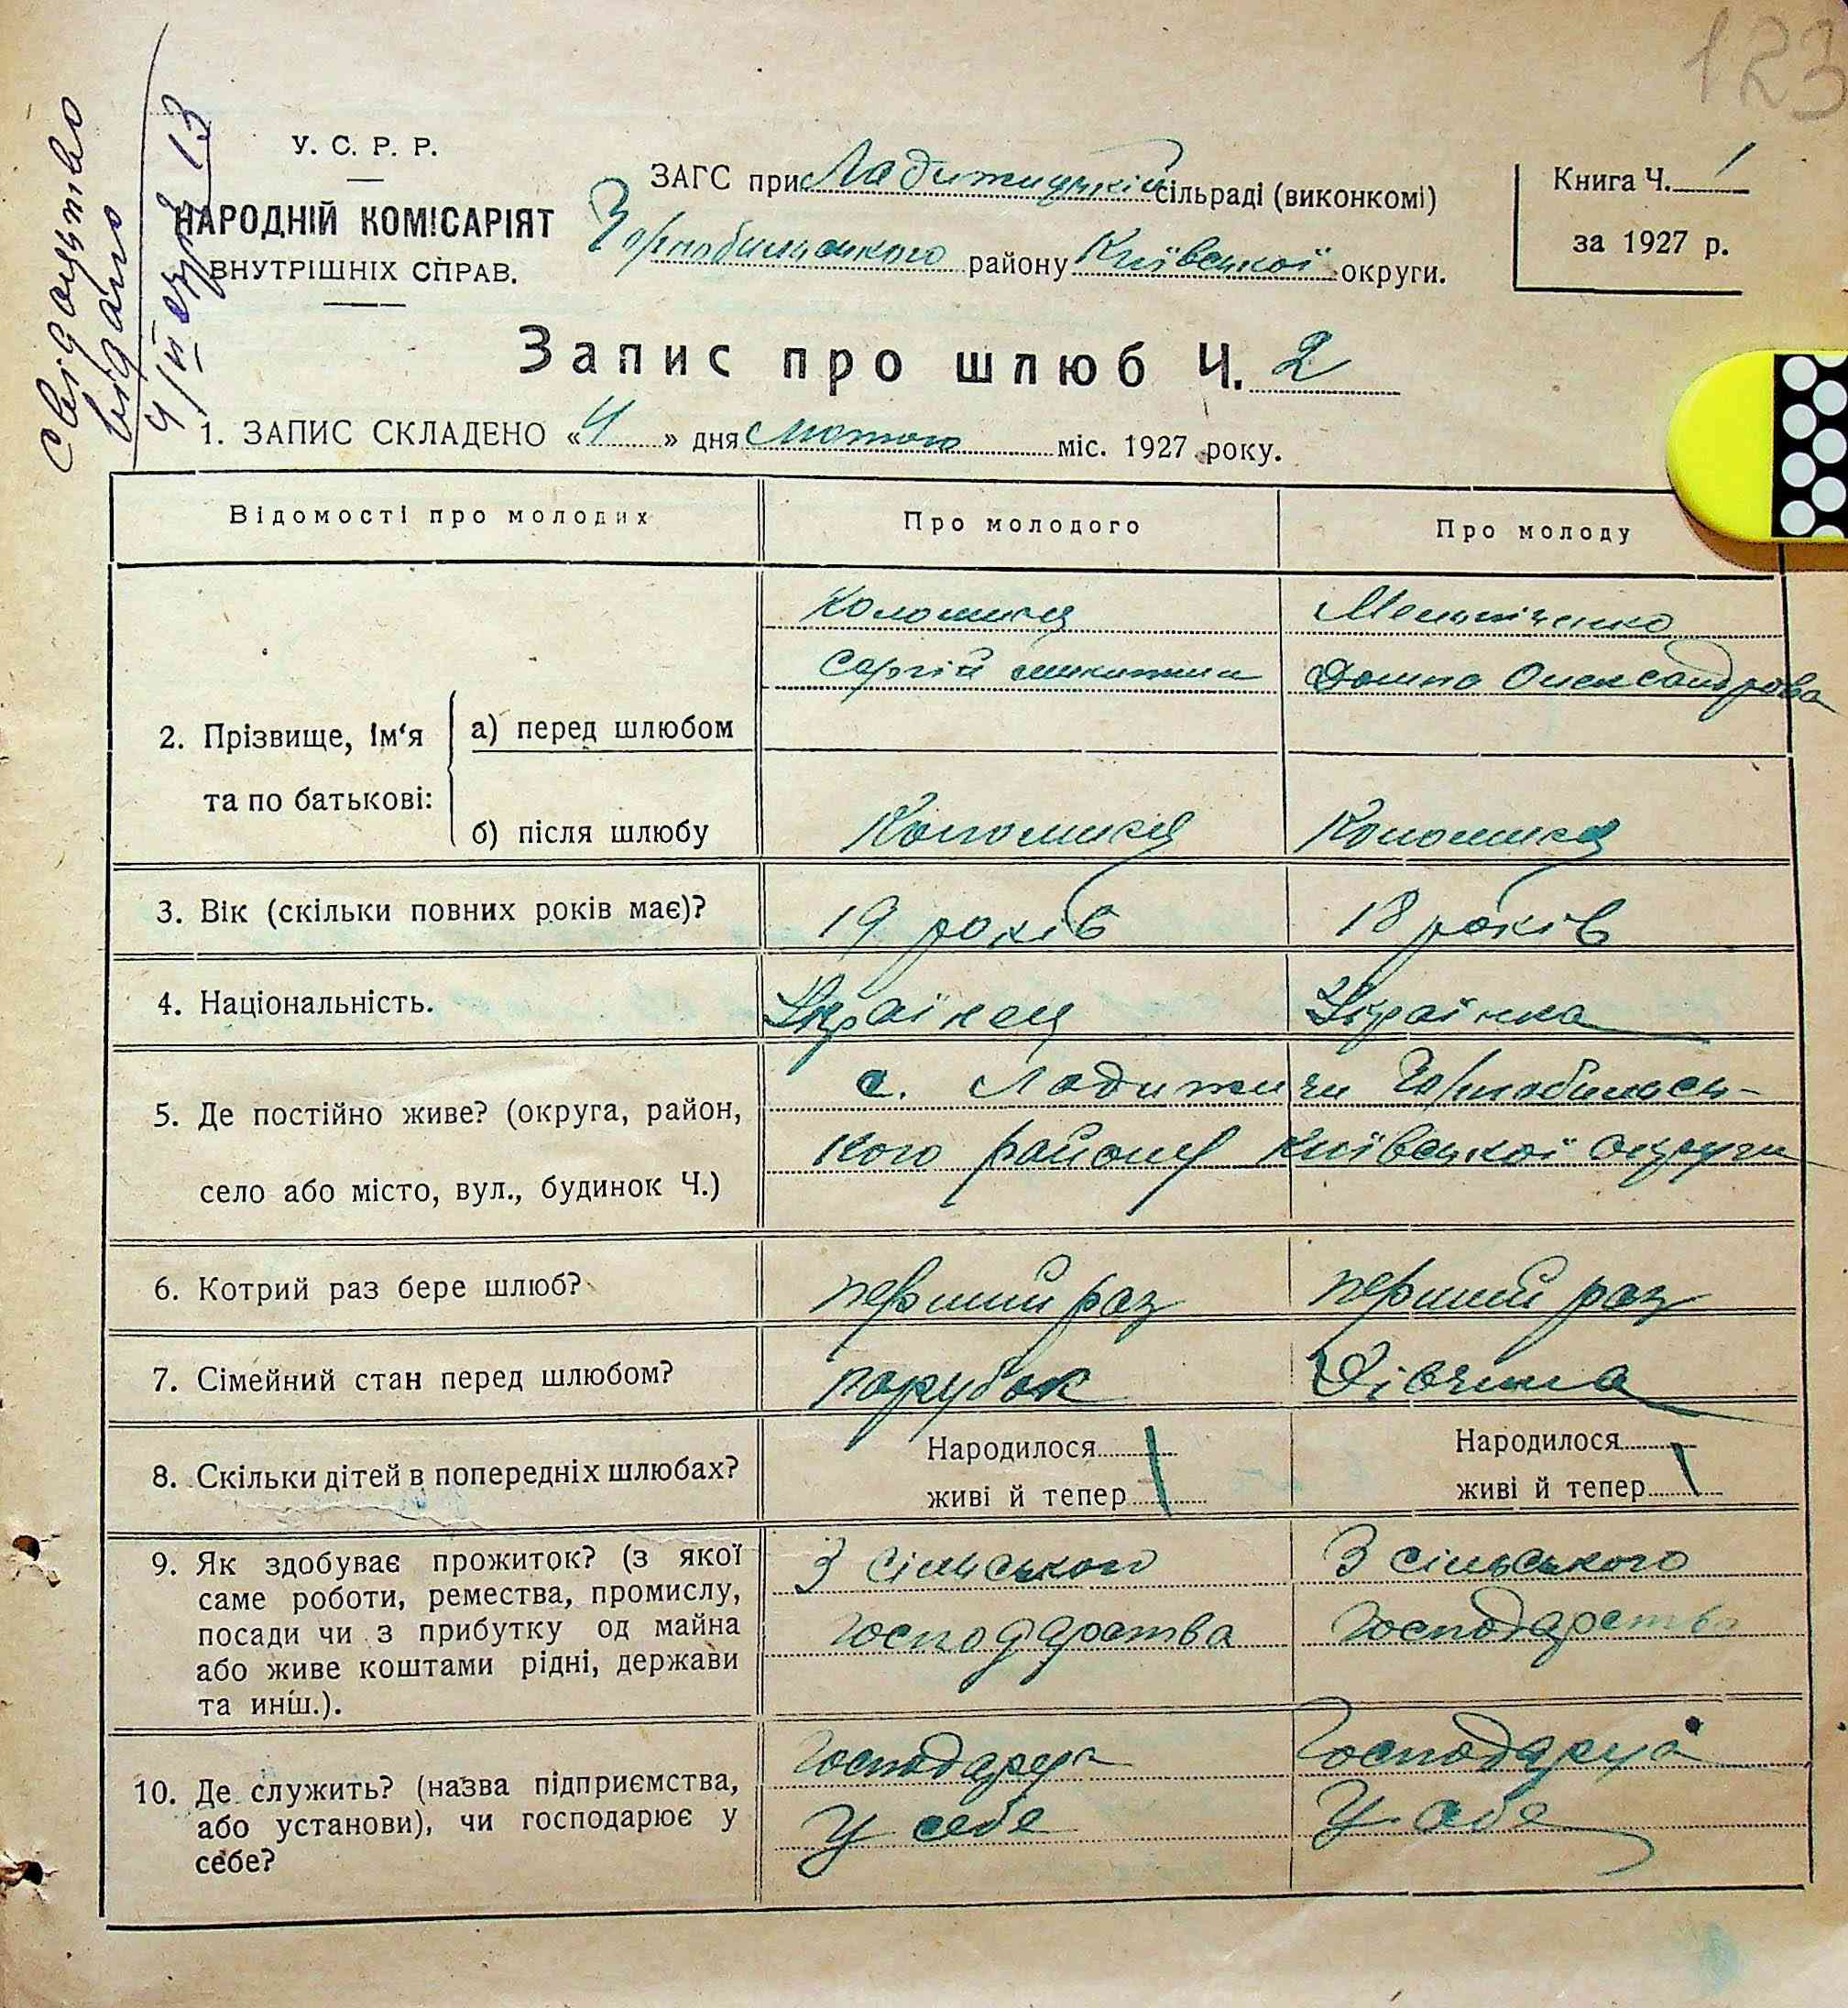 123
Свідоцтво
видано
4/II 27 13
У. С. Р. Р.
НАРОДНІЙ КОМІСАРІЯТ
ВНУТРІШНІХ СПРАВ.
ЗАГС при Ладижицькій сільраді (виконкомі)
Чорнобильського району Київської округи.
Книга Ч. 1
за 1927 р.
Запис про шлюб Ч. 2
1. ЗАПИС СКЛАДЕНО «4» дня лютого міс. 1927 року.
Відомості про молодих
Про молодого
Про молоду
2. Прізвище, ім'я
та по батькові:
а) перед шлюбом
Коломиєц
Сергій Микитин
Мельниченко
Домна Олександрова
б) після шлюбу
Коломиєц
Коломиєц
3. Вік (скільки повних років має)?
19 років
18 років
4. Національність.
Українец
Українка
5. Де постійно живе? (округа, район,
село або місто, вул., будинок Ч.)
с. Ладижичи Чорнобильсь-
кого району Київської округи
6. Котрий раз бере шлюб?
перший раз
перший раз
7. Сімейний стан перед шлюбом?
парубок
Дівчина
8. Скільки дітей в попередніх шлюбах?
Народилося
живі й тепер
Народилося
живі й тепер
9. Як здобуває прожиток? (з якої
саме роботи, ремества, промислу,
посади чи з прибутку од майна
або живе коштами рідні, держави
та инш.).
З сільського
господарства
З сільського
господарства
10. Де служить? (назва підприємства,
або установи), чи господарює у
себе?
Господарує
У себе
Господарує
У себе